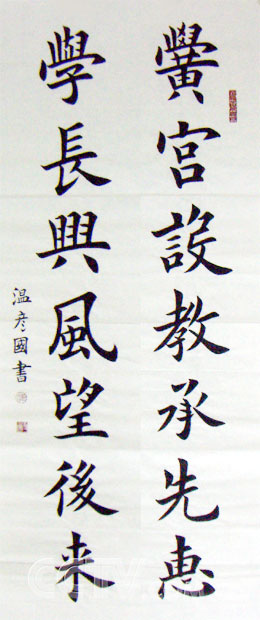 黌宮設教承先惠
學長興風望後來
溫彥國書
CCTV.com